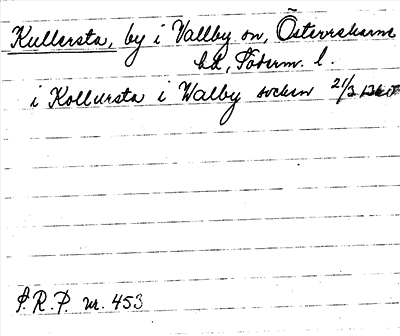 Kullersta, by i Vallby sn, Österrekarne
hd, Söderm. l.
i Kollursta i Walby socken 2/3
S.R.P. nr. 453